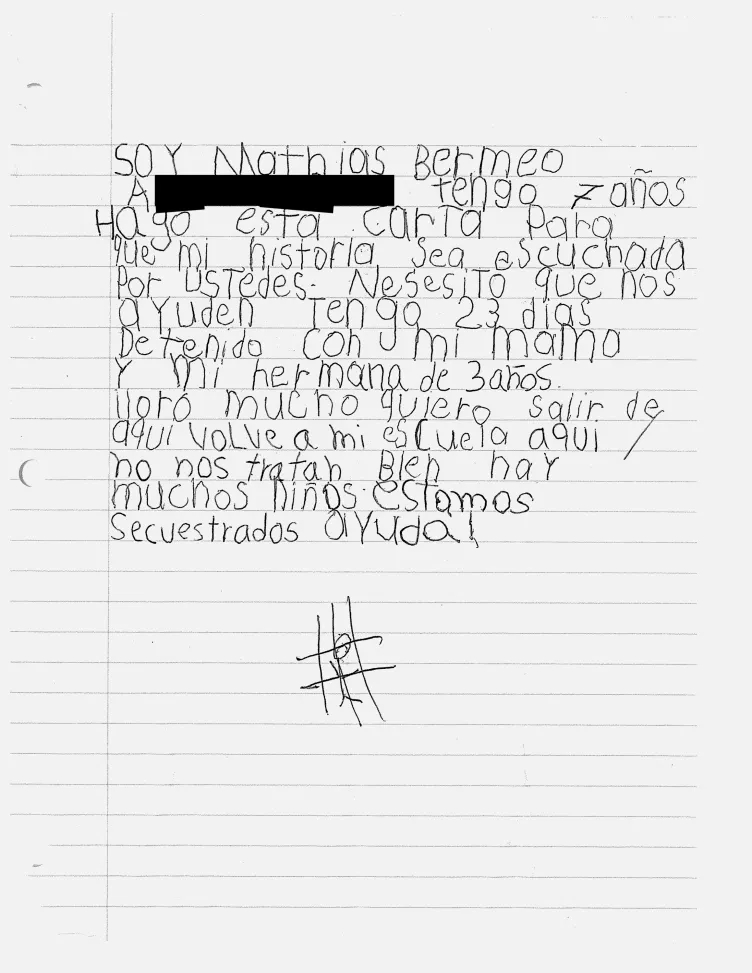 SOY Mathias Bermeo
A tengo 7 años
Hago esta carta Para
que mi historia sea escuchada
Por Ustedes. Nesesito que nos
ayuden Tengo 23 días
Detenido con mi mama
Y mi hermana de 3 años.
lloro mucho quiero salir de
aquí volve a mi escuela aquí
no nos tratan Bien hay
muchos niños. estamos
Secuestrados ayuda!